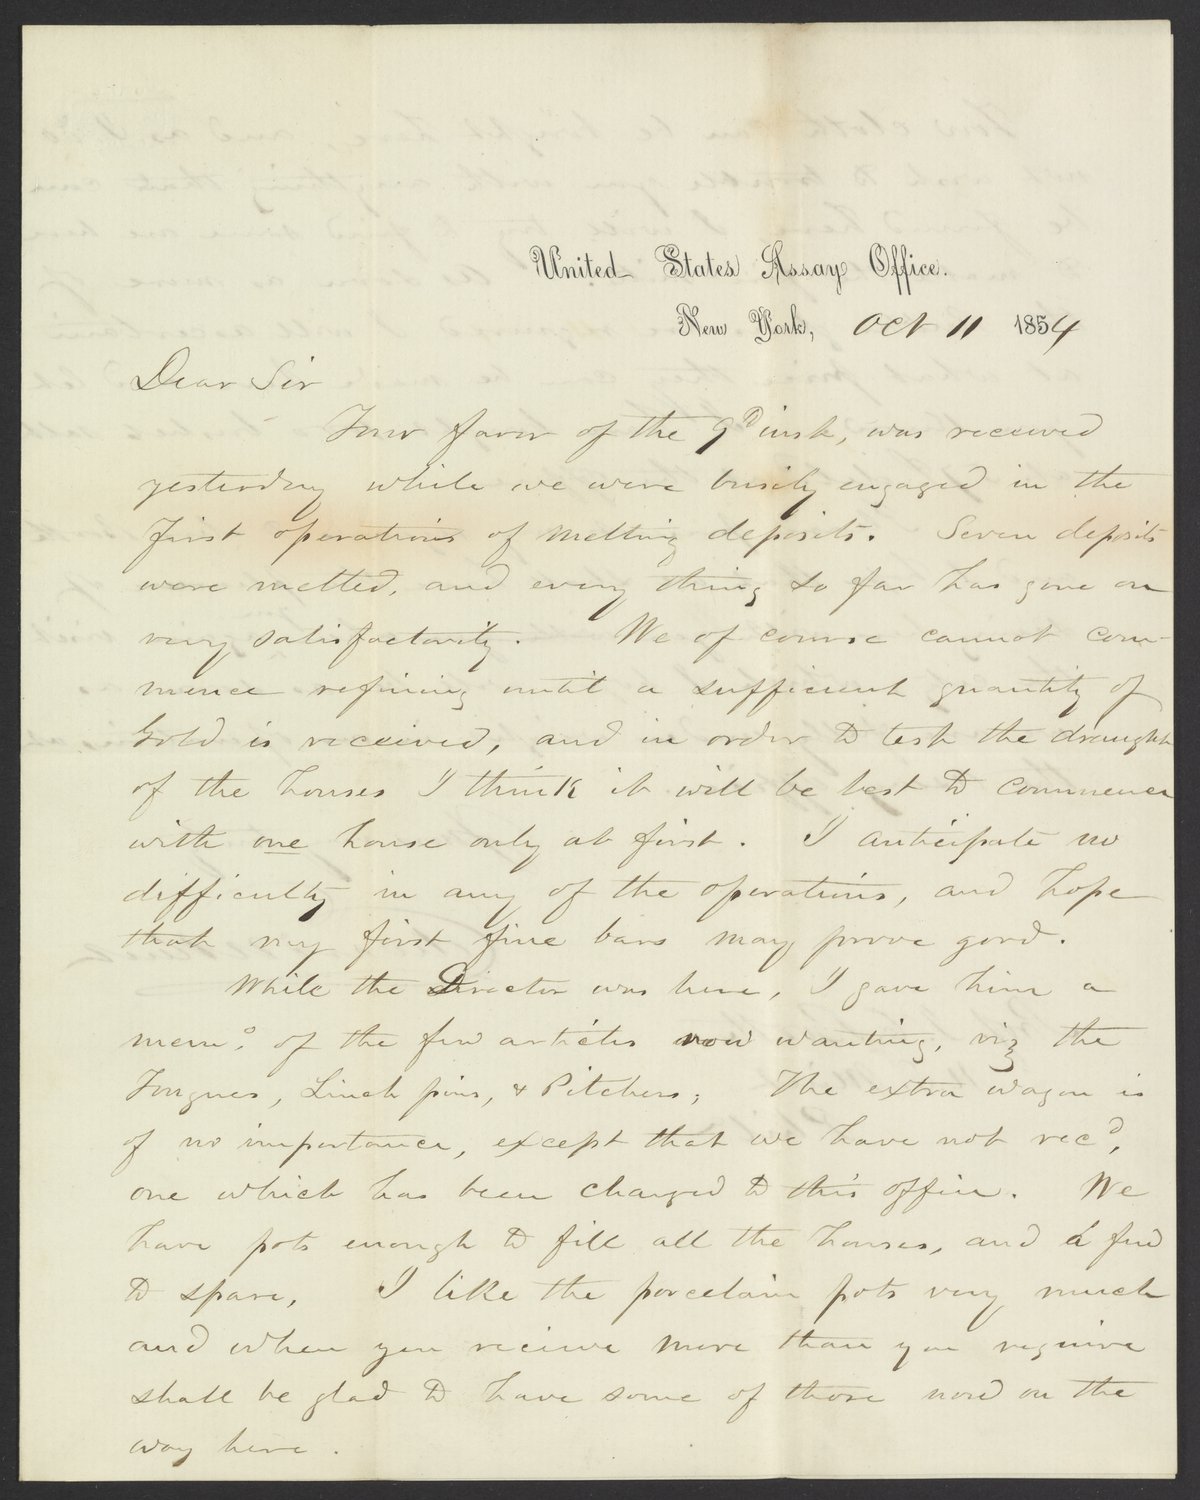 United States Assay Office.
New York, Oct 11 1854
Dear Sir
Your favor of the 9th inst, was received
yesterday while we were busily engaged in the
first operations of melting deposits. Seven deposits
were melted, and every thing so far has gone on
very satisfactorily. We of course cannot com-
mence refining until a sufficient quantity of
Gold is received, and in order to test the draught
of the houses I think it will be best to commence
with one house only at first. I anticipate no
difficulty in any of the operations, and hope
that my first fine bars may prove good.
While the Director was here, I gave him a
memo. of the few articles now wanting, viz the
Tongues, Linch pins, & Pitchers; The extra wagon is
of no importance, except that we have not recd,
one which has been charged to this office. We
have pots enough to fill all the houses, and a few
to spare, I like the porcelain pots very much
and when you receive more than you require
shall be glad to have some of those now on the
way here.